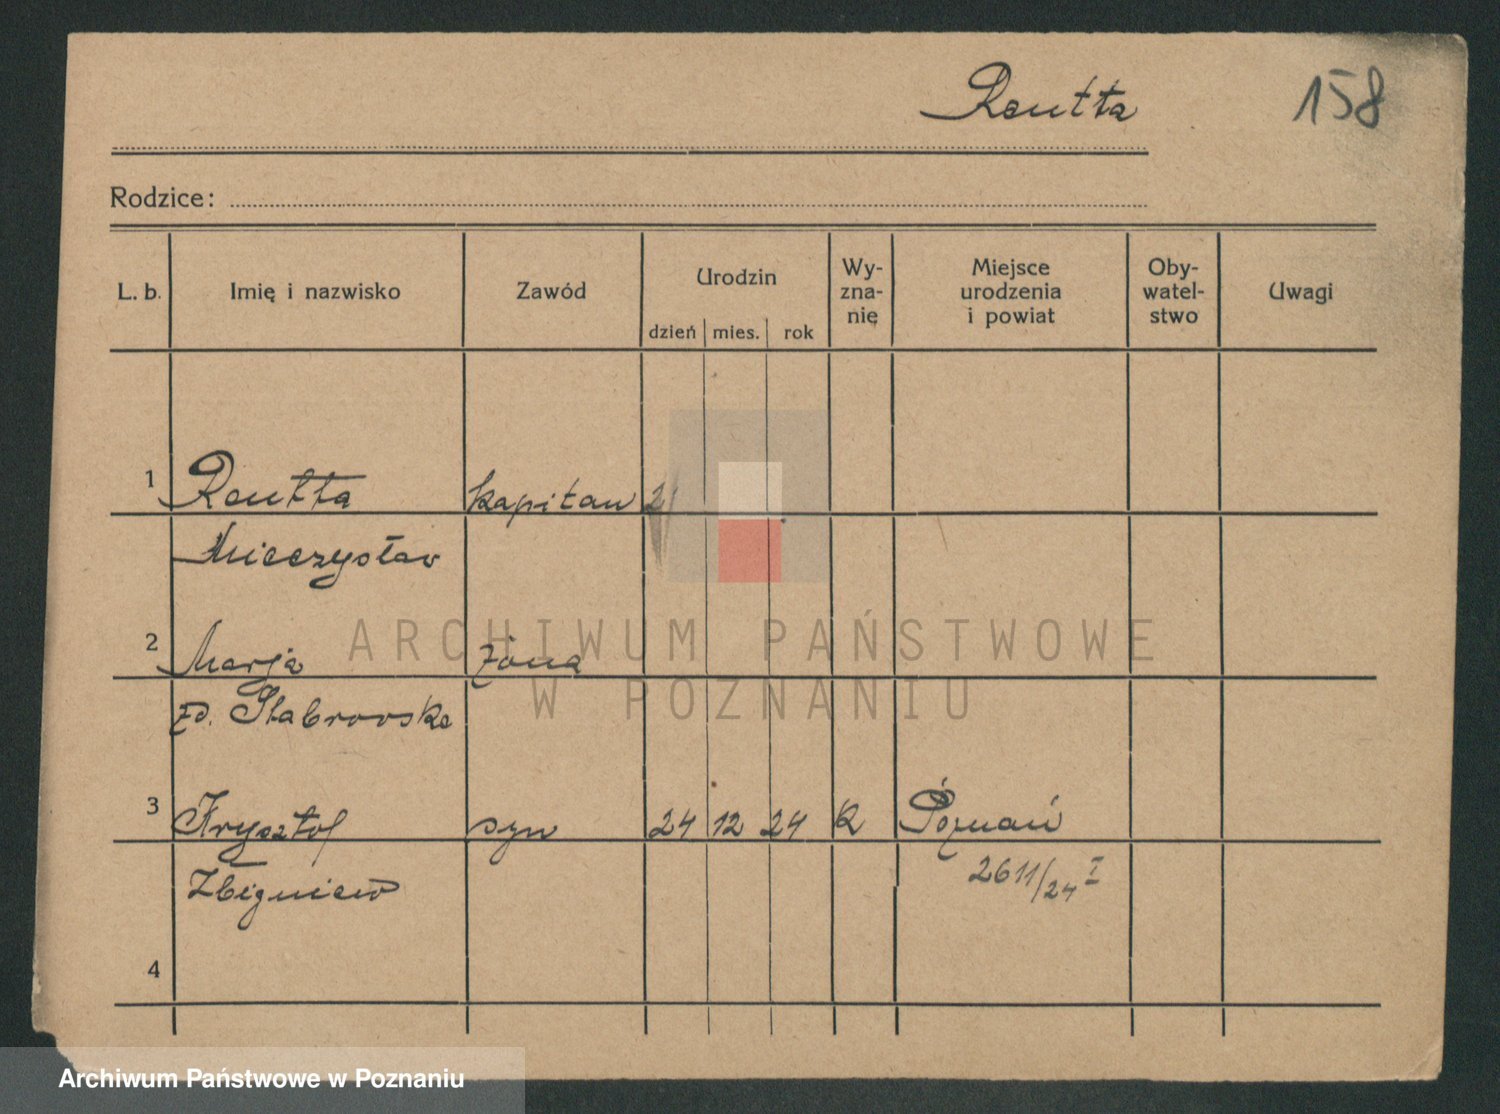 Reutta 158
Rodzice:
L. b. Imię i nazwisko Zawód Urodzin dzień mies. rok Wy-zna-nię Miejsce urodzenia i powiat Oby-watel-stwo Uwagi
1 Reutta kapitan
Mieczysław
2 Marja żona
zd. Stabrowska
3 Krysztof syn 24 12 24 k Poznań
Zbigniew 2611/24 I
4
ARCHIWUM PAŃSTWOWE
W POZNANIU
Archiwum Państwowe w Poznaniu